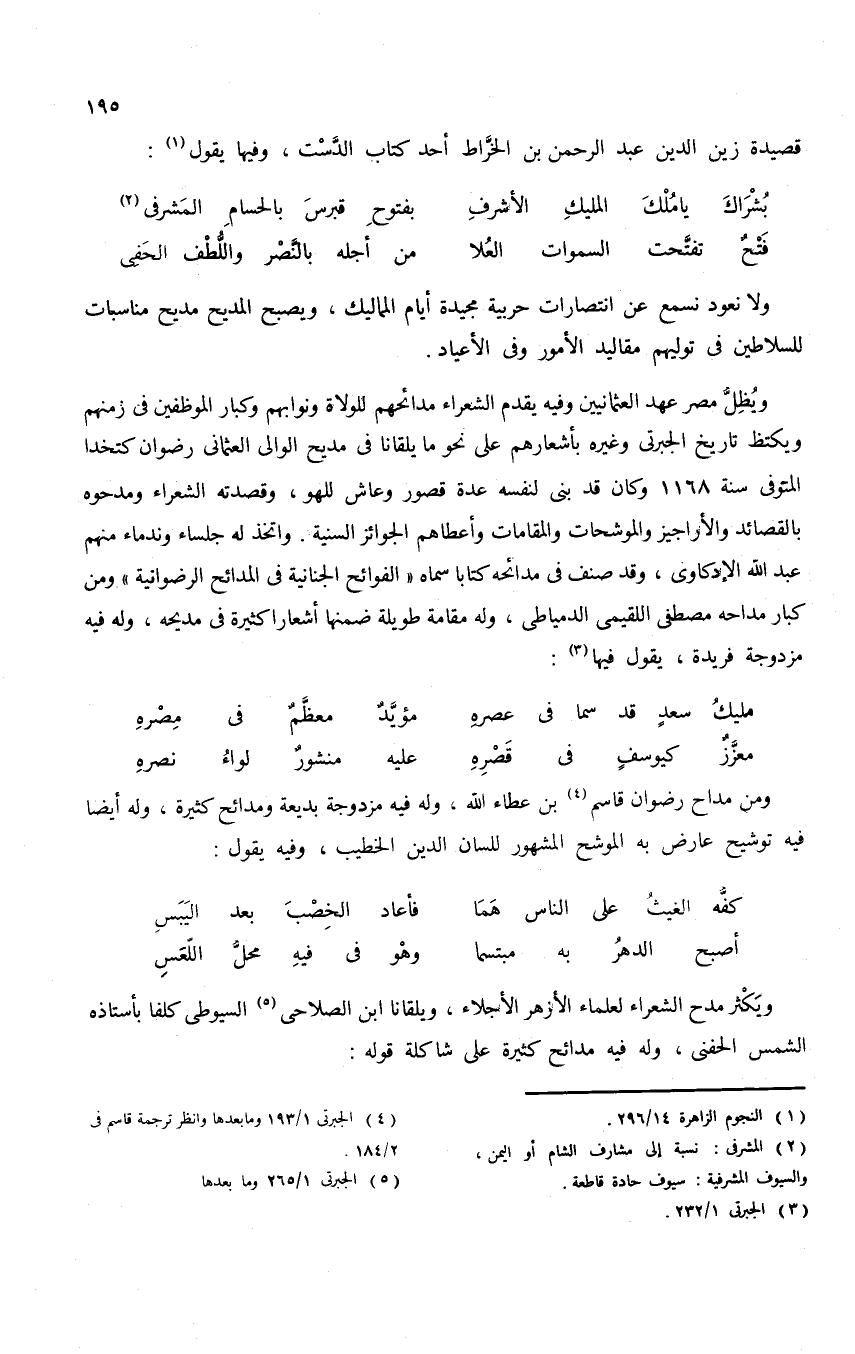 ١٩٥
قصيدة زين الدين عبد الرحمن بن الخرَّاط أحد كتاب الدَّسْت ، وفيها يقول(١) :
بُشْرَاكَ يامُلْكَ المليكِ الأشرفِ بفتوحِ قبرسَ بالحسامِ المَشرفى(٢)
فَتْحٌ تفتَّحت السموات العُلا من أجله بالنَّصْر واللُّطْف الخَفِى
ولا نعود نسمع عن انتصارات حربية مجيدة أيام المماليك ، ويصبح المديح مديح مناسبات
للسلاطين فى توليهم مقاليد الأمور وفى الأعياد .
ويُظِلُّ مصر عهد العثمانيين وفيه يقدم الشعراء مدائحهم للولاة ونوابهم وكبار الموظفين فى زمنهم
ويكتظ تاريخ الجبرتى وغيره بأشعارهم على نحو ما يلقانا فى مديح الوالى العثمانى رضوان كتخدا
المتوفى سنة ١١٦٨ وكان قد بنى لنفسه عدة قصور وعاش للهو ، وقصدته الشعراء ومدحوه
بالقصائد والأراجيز والموشحات والمقامات وأعطاهم الجوائز السنية . واتخذ له جلساء وندماء منهم
عبد الله الإدكاوى ، وقد صنف فى مدائحه كتابا سماه « الفوائح الجنانية فى المدائح الرضوانية » ومن
كبار مداحه مصطفى اللقيمى الدمياطى ، وله مقامة طويلة ضمنها أشعارا كثيرة فى مديحه ، وله فيه
مزدوجة فريدة ، يقول فيها(٣) :
مليكُ سعدٍ قد سما فى عصرهِ مؤيَّدٌ معظَّمٌ فى مِصْرهِ
معزَّزٌ كيوسفٍ فى قَصْرِهِ عليه منشورٌ لواءُ نصرهِ
ومن مداح رضوان قاسم(٤) بن عطاء الله ، وله فيه مزدوجة بديعة ومدائح كثيرة ، وله أيضا
فيه توشيح عارض به الموشح المشهور للسان الدين الخطيب ، وفيه يقول :
كفُّه الغيثُ على الناس هَمَا فأعاد الخِصْبَ بعد اليَبَسِ
أصبح الدهرُ به مبتسما وهْو فى فيهِ محلُّ اللّعَسِ
ويَكْثر مدح الشعراء لعلماء الأزهر الأجلاء ، ويلقانا ابن الصلاحى(٥) السيوطى كلفا بأستاذه
الشمس الحفنى ، وله فيه مدائح كثيرة على شاكلة قوله :
(١) النجوم الزاهرة ٢٩٦/١٤ .
(٢) المشرفى : نسبة إلى مشارف الشام أو اليمن ،
والسيوف المشرفية : سيوف حادة قاطعة .
(٣) الجبرتى ٢٣٢/١ .
(٤) الجبرتى ١٩٣/١ ومابعدها وانظر ترجمة قاسم فى
١٨٤/٢ .
(٥) الجبرتى ٢٦٥/١ وما بعدها